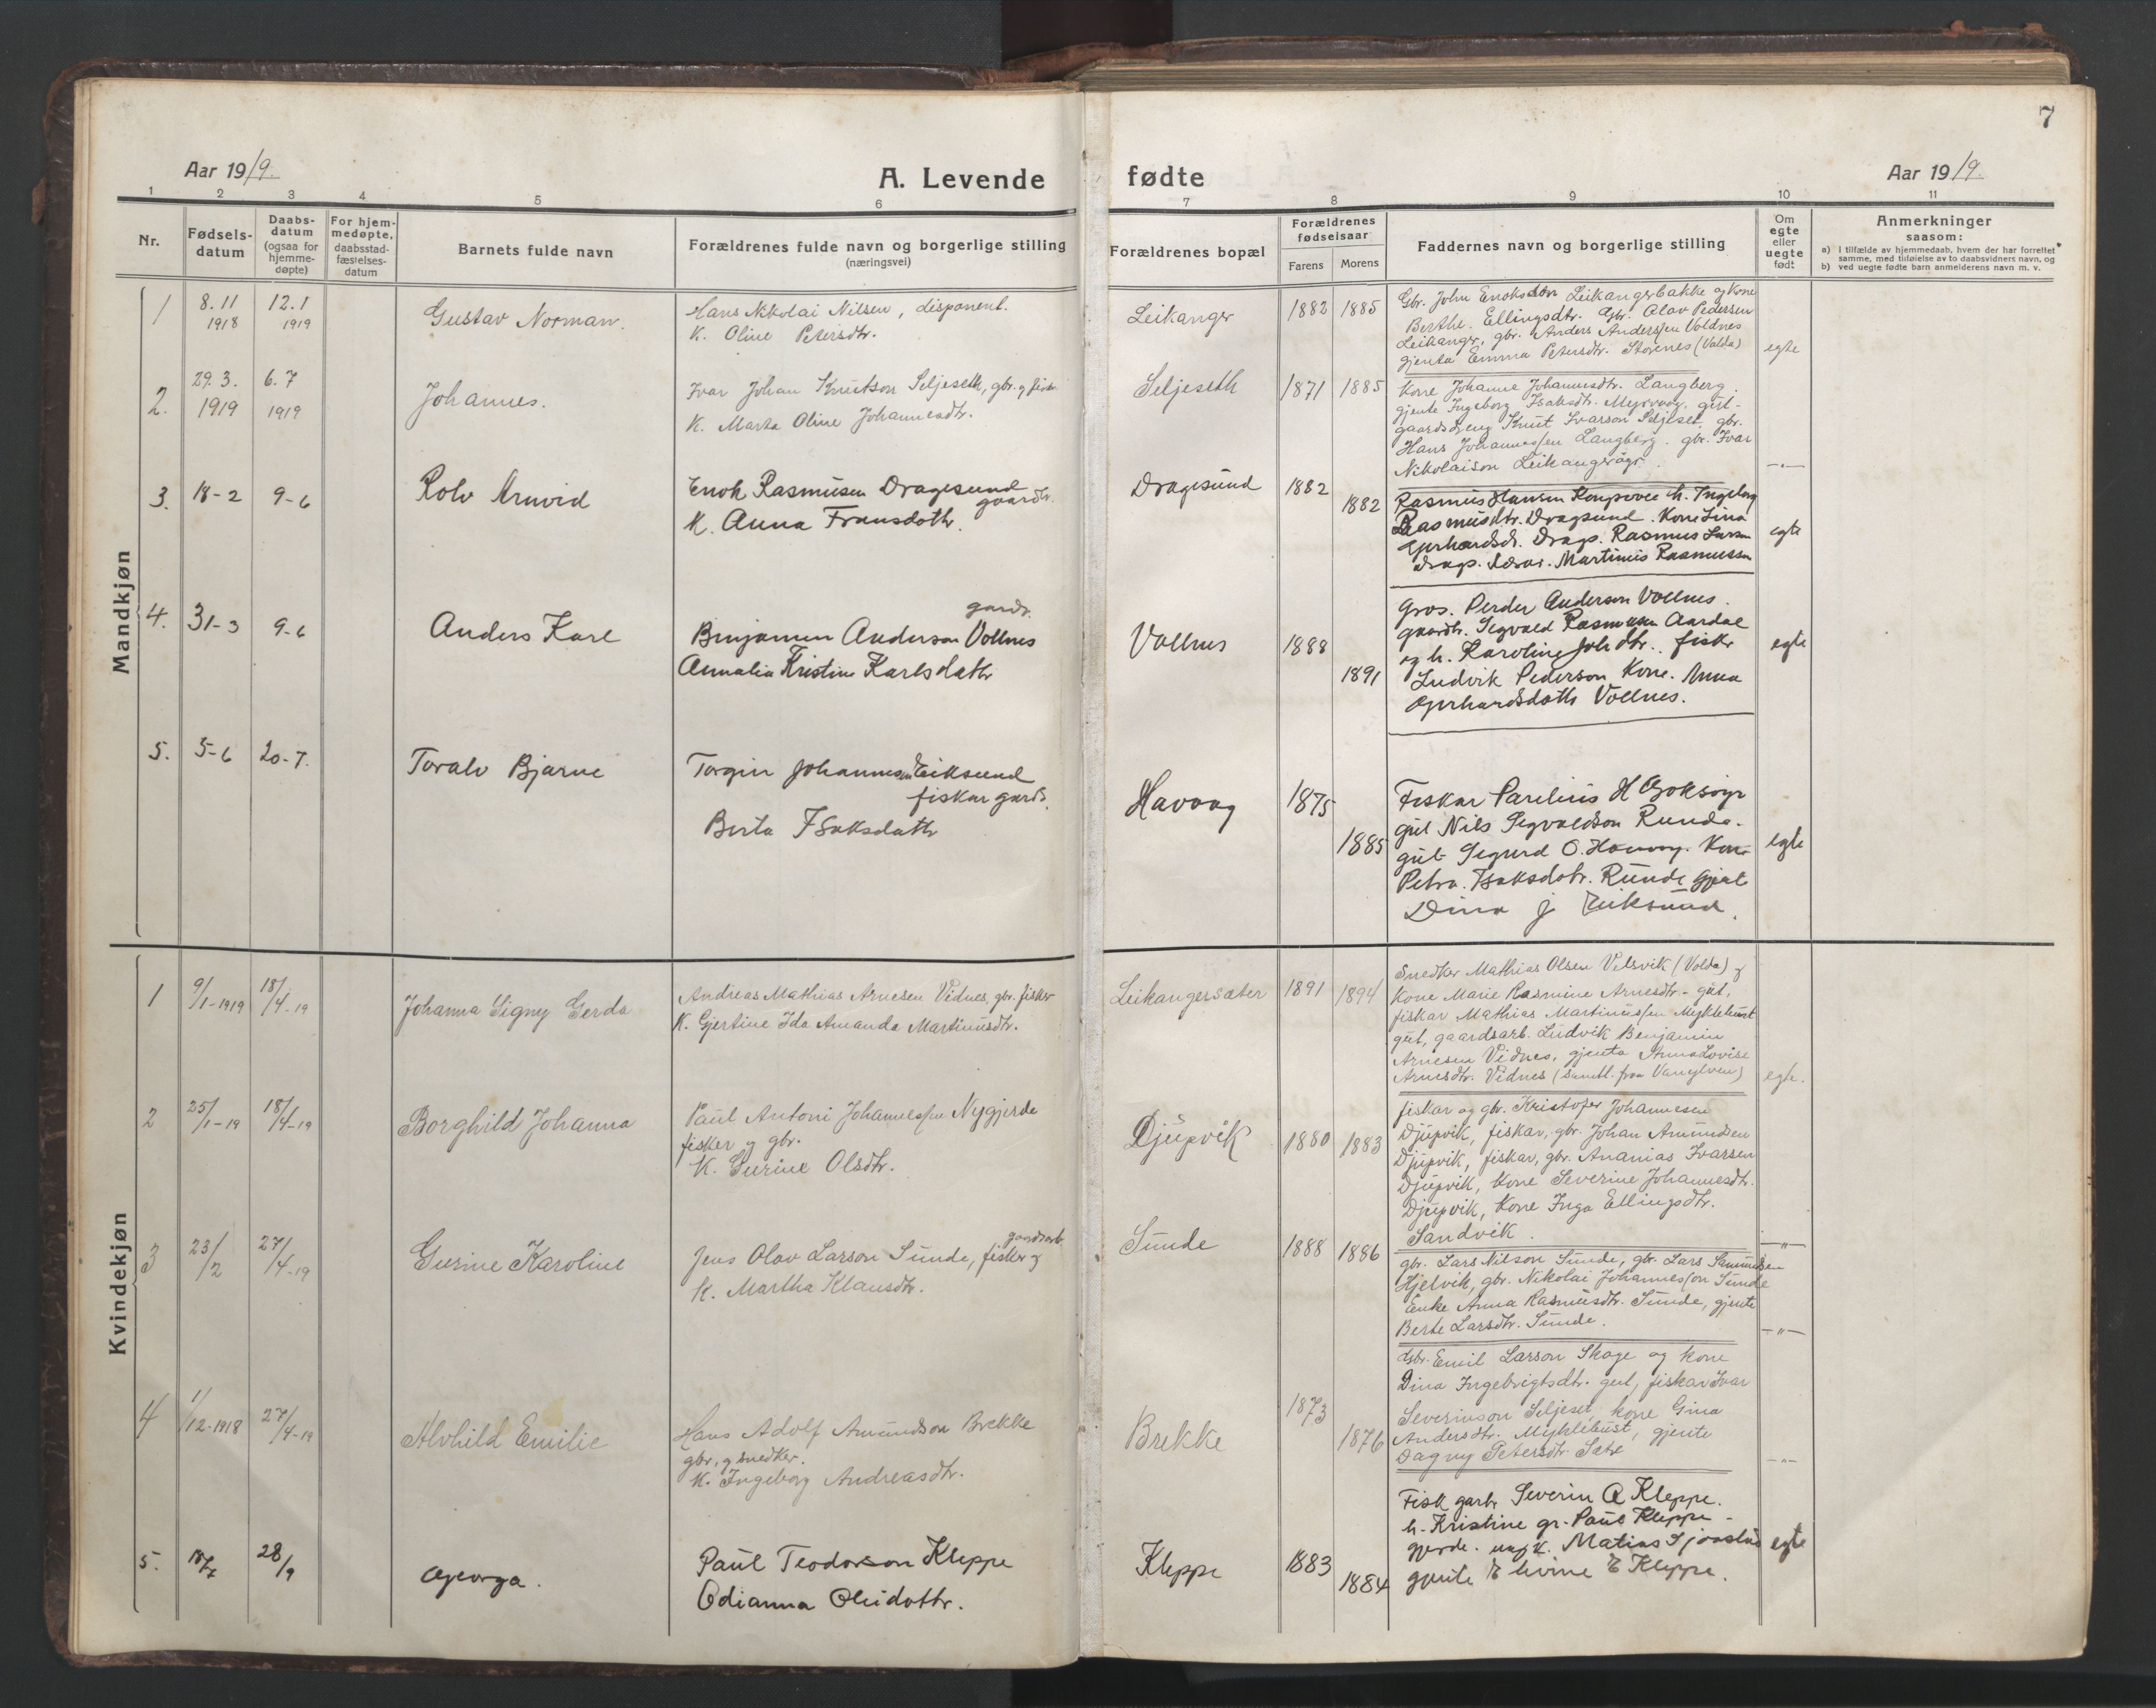 7
Aar 1919.
A. Levende
fødte
Aar 1919.
1 2 3 4 5 6 7 8 9 10 11
Nr.
Fødsels-
datum
Daabs-
datum
(ogsaa for
hjemme-
døpte)
For hjem-
medøpte,
daabsstad-
fæstelses-
datum
Barnets fulde navn
Forældrenes fulde navn og borgerlige stilling
(næringsvei)
Forældrenes bopæl
Forældrenes
fødselsaar
Farens Morens
Faddernes navn og borgerlige stilling
Om
egte
eller
uegte
født
Anmerkninger
saasom:
a) i tilfælde av hjemmedaab, hvem der har forrettet
samme, med tilføielse av to daabsvidners navn, og
b) ved uegte fødte barn anmelderens navn m. v.
Mandkjøn
1
8.11
1918
12.1
1919
Gustav Norman.
Hans Nikolai Nilsen, disponent.
K. Oline Petersdtr.
Leikanger
1882 1885
Gbr. John Enoksdtr Leikangerbakke og kone
Berthe. Ellingsdtr. Gbr. Olav Pedersen
Leikanger, gbr. Anders Anderssen Voldnes
gjenta Emma Petersdtr. Storenes (Valda)
egte
2.
29.3.
1919
6.7
1919
Johannes.
Ivar Johan Knutson Seljeseth, gbr. g fisk.
K. Marta Oline Johannesdtr.
Seljeseth
1871 1885
Kone Johanne Johannesdtr. Langberg.
gjente Ingeborg Isaksdtr. Myrvaag. gut-
gaardsdreng Knut Ivarson Seljeset, gbr.
Hans Johannessen Langberg. gbr. Ivar
Nikolaison Leikanger
-"-
3.
18-2
9-6
Rolv Arnvid
Enok Rasmusen Dragesund
gaardbr.
K. Anna Fransdottr.
Dragesund
1882
1882
Rasmus Hansen h. Ingeborg
Rasmusdtr. Dragsund. Kone Lina
Gerhardsd. Drags. Rasmus Larsen
Drags. Martinus Rasmussen
egte
4.
31-3
9-6
Anders Karl
gardr.
Benjamin Anderson Vollnes
Annalia Kristine Karlsdottr
Vollnes
1888
1891
Peder Anderson Vollnes.
gaardbr. Segvald Rasmusen Aardal
og h. Karoline Joh dtr. fiskr
Ludvik Pederson Kone. Anna
Gerhardsdottr Vollnes.
egte
5.
5-6
20-7.
Toralv Bjarne
Torgin Johannesen Eiksund
fiskar gards.
Berta Isaksdottr
Havaag
1875
1885
Fiskar Parelius H Goksøyr
gut Nils Segvaldson Runde.
gut Segurd O. Kone
Petra. Isaksdotr. Runde Gjent
Dina J Eiksund.
egte
Kvindekjøn
1
9/1-1919
18/4-19
Johanna Signy Gerda
Andreas Mathias Arnesen Vidnes, gbr. fisker
K. Gjertine Ida Amanda Martinusdtr.
Leikangersæter
1891 1894
Snedker Mathias Olsen Velsvik (Volda) g
kone Marie Rasmine Arnesdtr- gut,
fiskar Mathias Martinussen Myklebust
gut, gaardsarb. Ludvik Benjamin
Arnesen Vidnes, gjenta Anna Lovise
Arnesdtr. Vidnes (samtl. fra Vanylven)
egte.
2
25/1-19
18/4-19
Borghild Johanna
Paul Antoni Johannessen Nygjerde
fisker g gbr.
K. Gurine Olsdtr.
Djupvik
1880 1883
fiskar og gbr. Kristofer Johannesen
Djupvik, fiskar, gbr. Johan Amundsen
Djupvik, fiskar, gbr. Ananias Ivarsen
Djupvik, kone Severine Johannesdtr.
Djupvik, kone Inga Ellingsdtr.
Sandvik.
-"-
3
23/2
27/4-19
Gurine Karoline
gaardsarb
Jens Olav Larson Sunde, fisker g
K. Martha Klausdtr.
Sunde
1888 1886
gbr. Lars Nilson Sunde, gbr. Lars Samundsen
Hjelvik, gbr. Nikolai Johannesson Sunde
Enke Anna Rasmusdtr. Sunde, gjente
Berte Larsdtr. Sunde.
-"-
4
1/12-1918
27/4-19
Alvhild Emilie
Hans Adolf Amundson Brekke
gbr. g snedker.
K. Ingeborg Andreasdtr.
Brekke
1873
1876
gbr. Emil Larson Skoge og kone
Dina Ingebrigtsdtr. gut, fiskar Ivar
Severinson Seljeset, kone Gina
Andersdtr. Myklebust, gjente
Dagny Petersdtr. Sætre
-"-
5.
18/7
28/9
Georga.
Paul Teodorson Kleppe
Odianna Olsidottr.
Kleppe
1883
1884
Fisk garbr Severin A Kleppe.
h. Kristine gr. Paul Kleppe-
gjerde. ungk. Matias
gjente Elivine E Kleppe.
egte